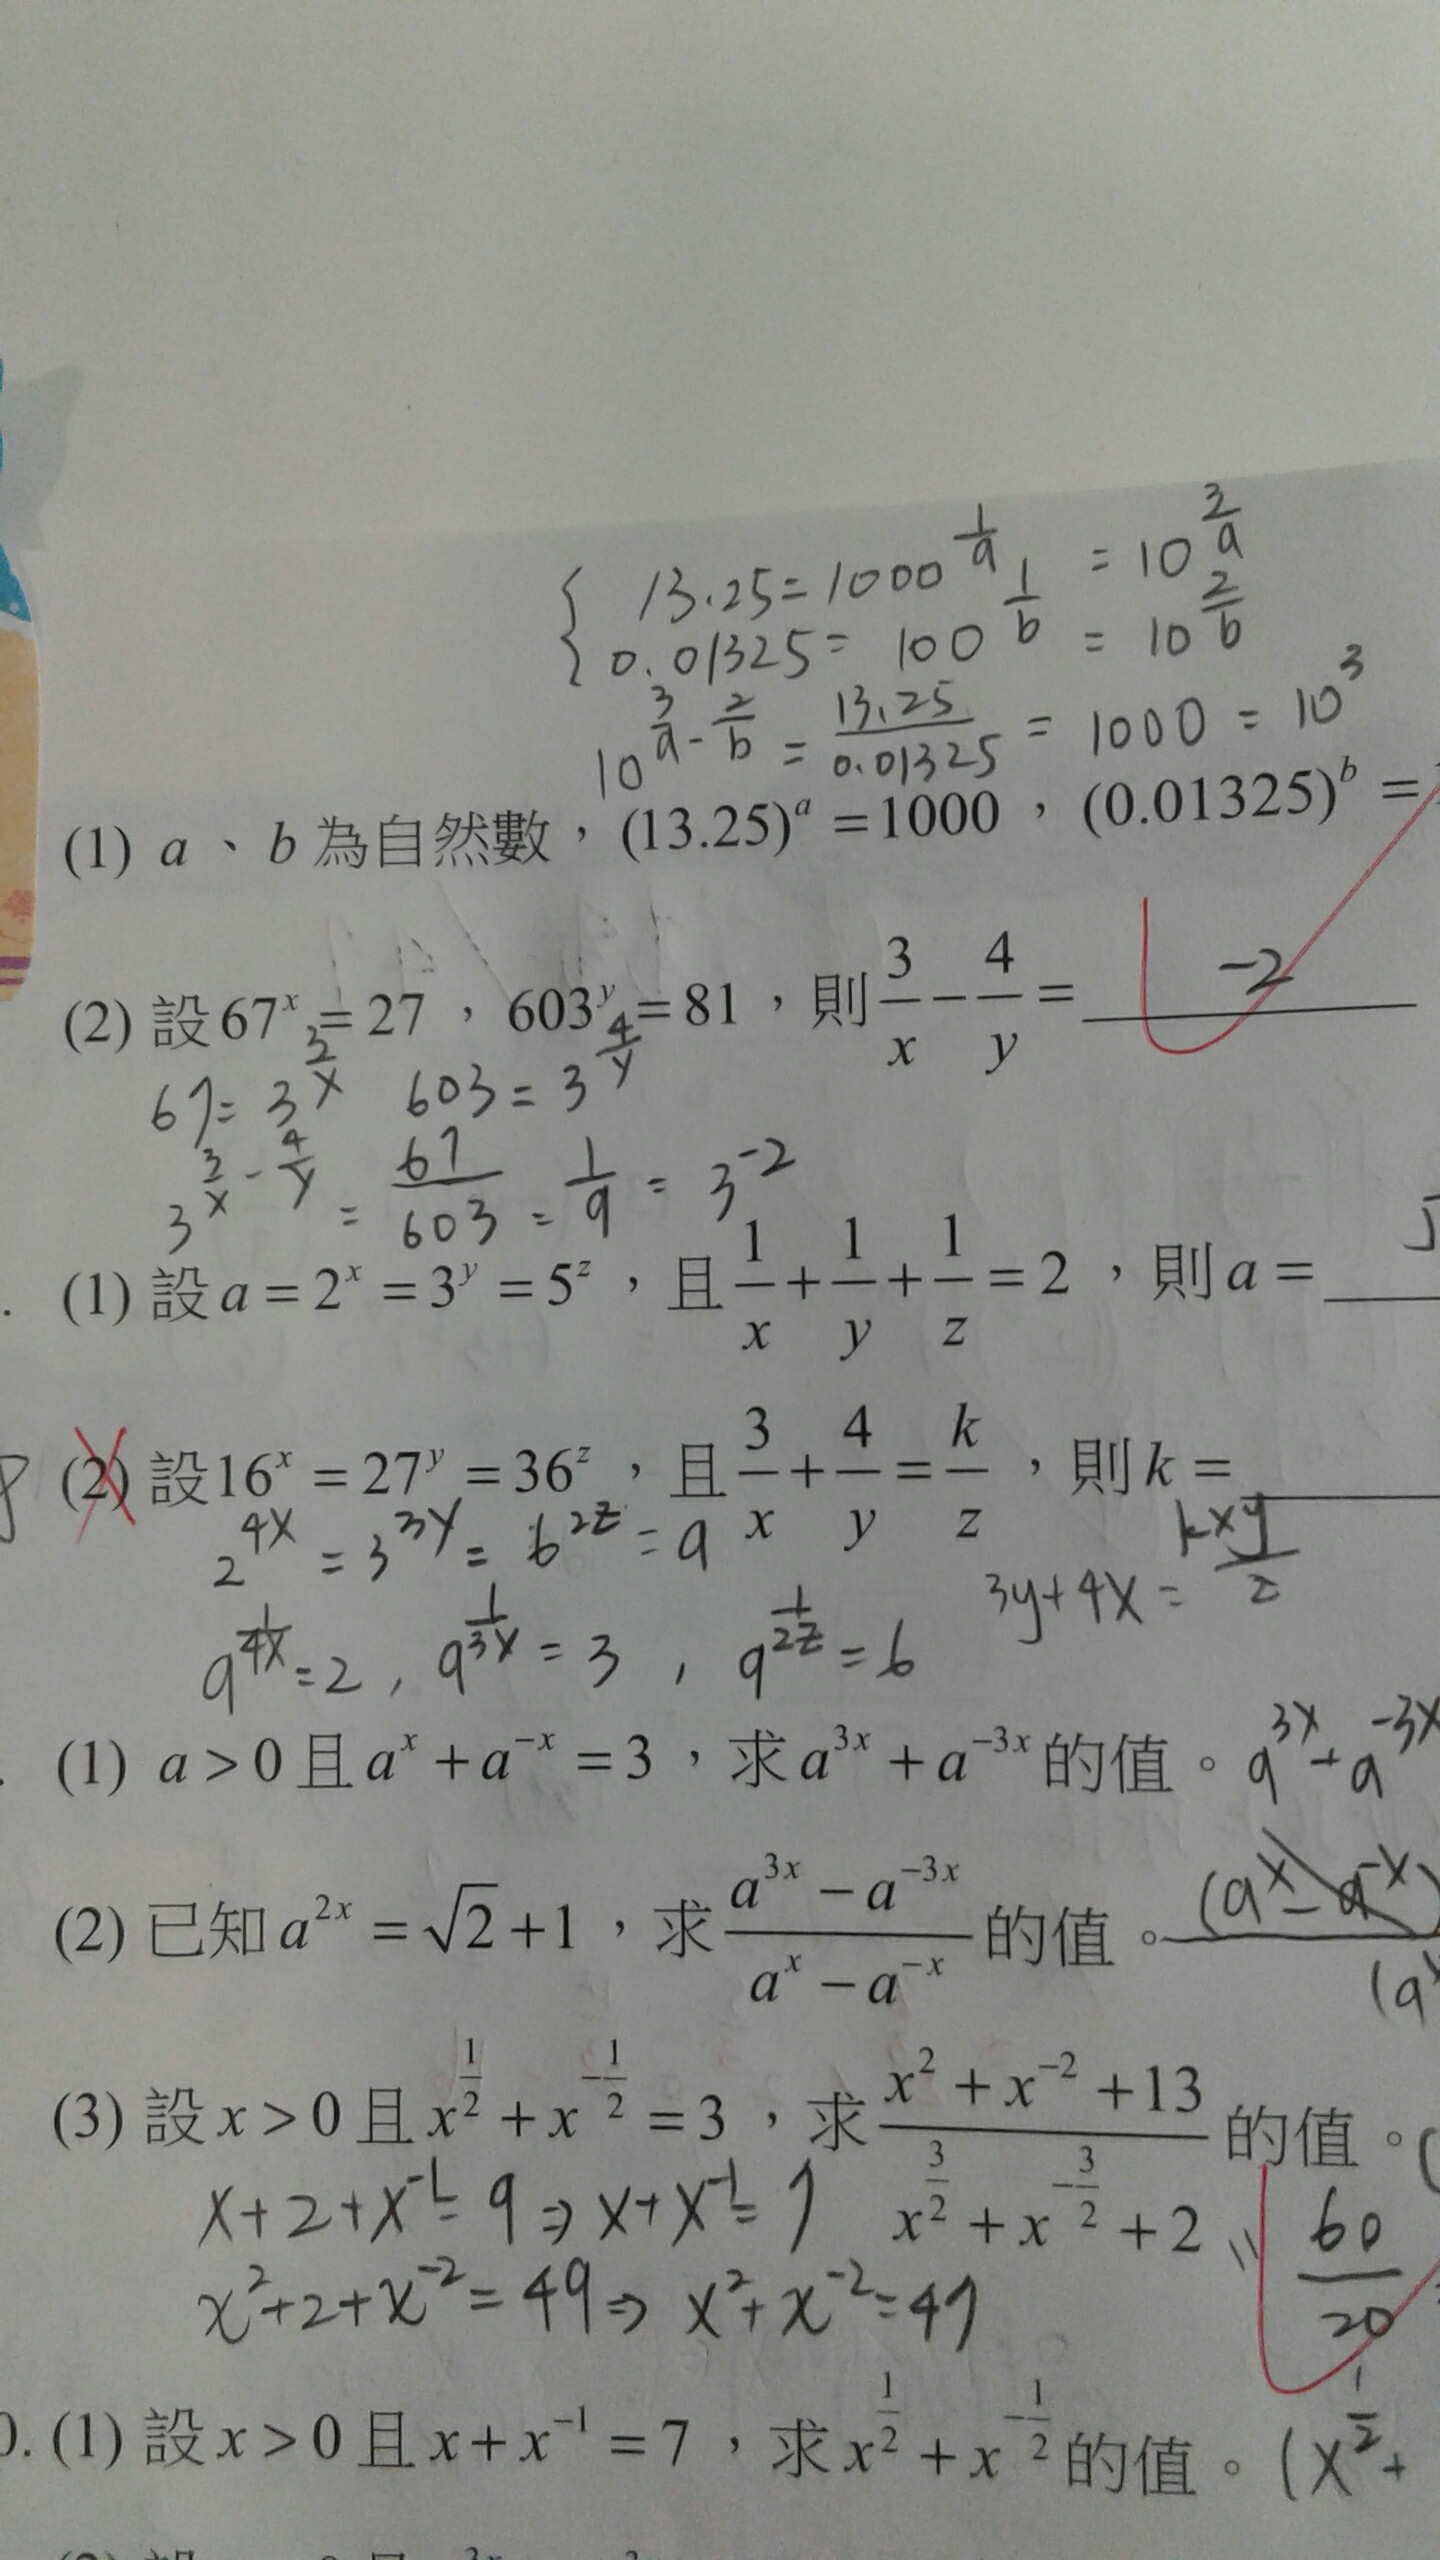 { 13.25 = 1000^(1/a) = 10^(3/a)
0.01325 = 100^(1/b) = 10^(2/b)
10^(3/a - 2/b) = 13.25/0.01325 = 1000 = 10^3
(1) a、b 為自然數，(13.25)^a = 1000，(0.01325)^b =
(2) 設 67^x = 27，603^y = 81，則 3/x - 4/y = -2
67 = 3^(3/x) 603 = 3^(4/y)
3^(3/x - 4/y) = 67/603 = 1/9 = 3^-2
. (1) 設 a = 2^x = 3^y = 5^z，且 1/x + 1/y + 1/z = 2，則 a =
(2) 設 16^x = 27^y = 36^z，且 3/x + 4/y = k/z，則 k =
2^4x = 3^3y = 6^2z = a
3y+4x = kxy/z
a^(1/4x) = 2 , a^(1/3y) = 3 , a^(1/2z) = 6
. (1) a > 0 且 a^x + a^-x = 3，求 a^3x + a^-3x 的值。 a^3x + a^-3x
(2) 已知 a^2x = √2 + 1，求 (a^3x - a^-3x)/(a^x - a^-x) 的值。 (a^x - a^-x) (a^x
(3) 設 x > 0 且 x^(1/2) + x^(-1/2) = 3，求 (x^2 + x^-2 + 13)/(x^(3/2) + x^(-3/2) + 2) 的值。
x+2+x^-1 = 9 ⇒ x+x^-1 = 7
= 60/20
x^2+2+x^-2 = 49 ⇒ x^2+x^-2 = 47
0. (1) 設 x > 0 且 x + x^-1 = 7，求 x^(1/2) + x^(-1/2) 的值。 (x^(1/2) +